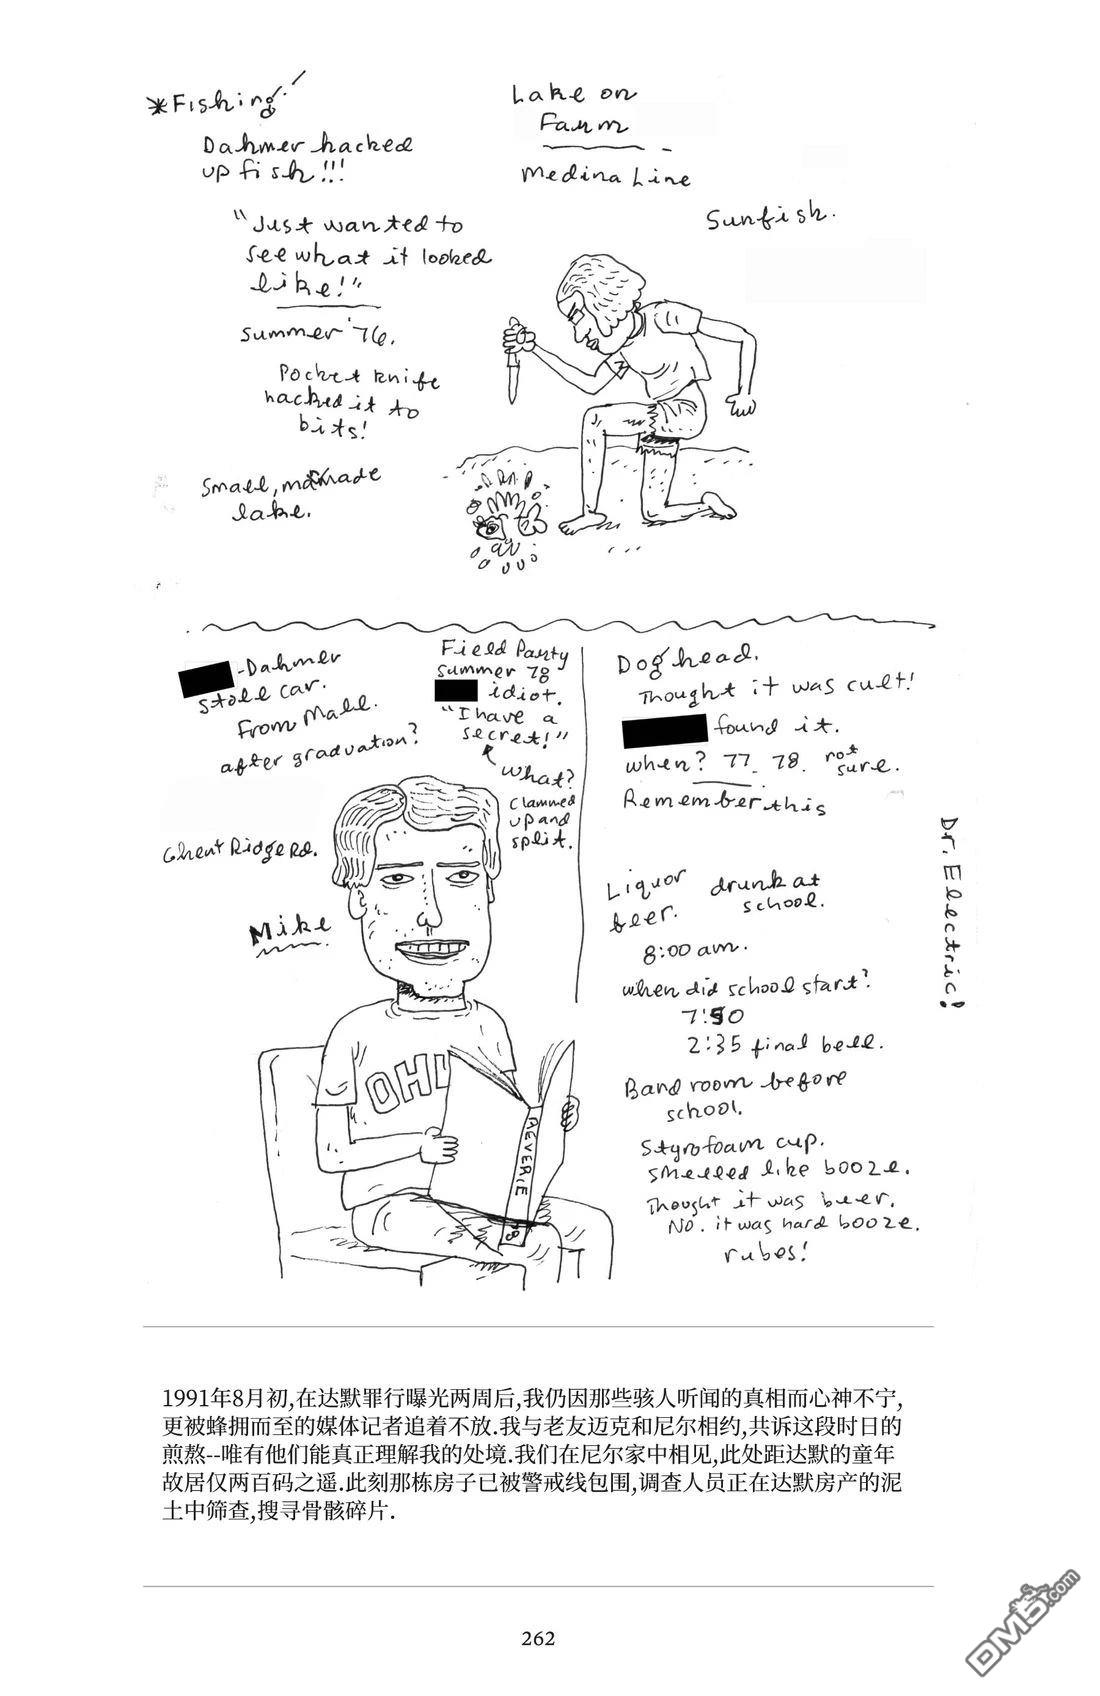 *Fishing!
Dahmer hacked
up fish!!!
"Just wanted to
see what it looked
like!"
Summer '76.
Pocket knife
hacked it to
bits!
Small, manmade
lake.
Lake on
Farm
Medina Line
Sunfish.
-Dahmer
stole car.
From Mall.
after graduation?
Ghent Ridge Rd.
Mike
Field Party
summer 78
idiot.
"I have a
secret!"
what?
clammed
up and
split.
OHI
REVERIE
78
Dog head.
Thought it was cult!
found it.
when? 77. 78. not
sure.
Remember this
Liquor
beer.
drunk at
school.
8:00 am.
when did school start?
7:50
2:35 final bell.
Band room before
school.
Styrofoam cup.
smelled like booze.
Thought it was beer.
No. it was hard booze.
rubes!
Dr. Electric!
1991年8月初,在达默罪行曝光两周后,我仍因那些骇人听闻的真相而心神不宁,
更被蜂拥而至的媒体记者追着不放.我与老友迈克和尼尔相约,共诉这段时日的
煎熬--唯有他们能真正理解我的处境.我们在尼尔家中相见,此处距达默的童年
故居仅两百码之遥.此刻那栋房子已被警戒线包围,调查人员正在达默房产的泥
土中筛查,搜寻骨骸碎片.
262
DM5.com